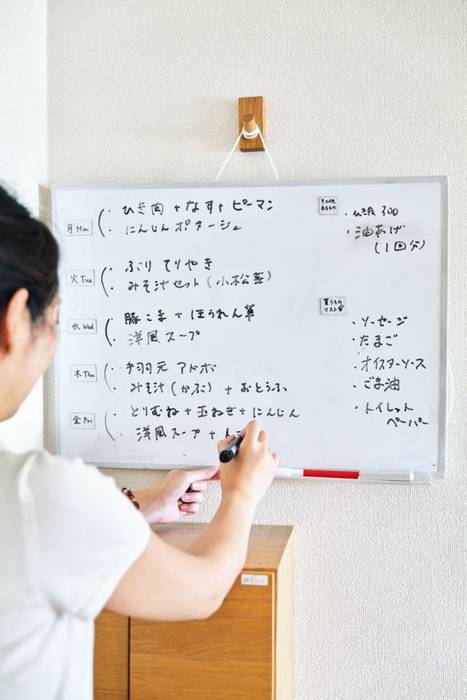 月 Mon
・ひき肉 + なす + ピーマン
・にんじんポタージュ
火 Tue
・ぶり てりやき
・みそ汁セット (小松菜)
水 Wed
・豚こま + ほうれん草
・洋風スープ
木 Thu
・手羽元 アドボ
・みそ汁 (かぶ) + おとうふ
金 Fri
・とりむね + 玉ねぎ + にんじん
・洋風スープ + ト
その他
あるもの
300
・油あげ
(1回分)
買うもの
リスト
・ソーセージ
・たまご
・オイスターソース
・ごま油
・トイレット
ペーパー